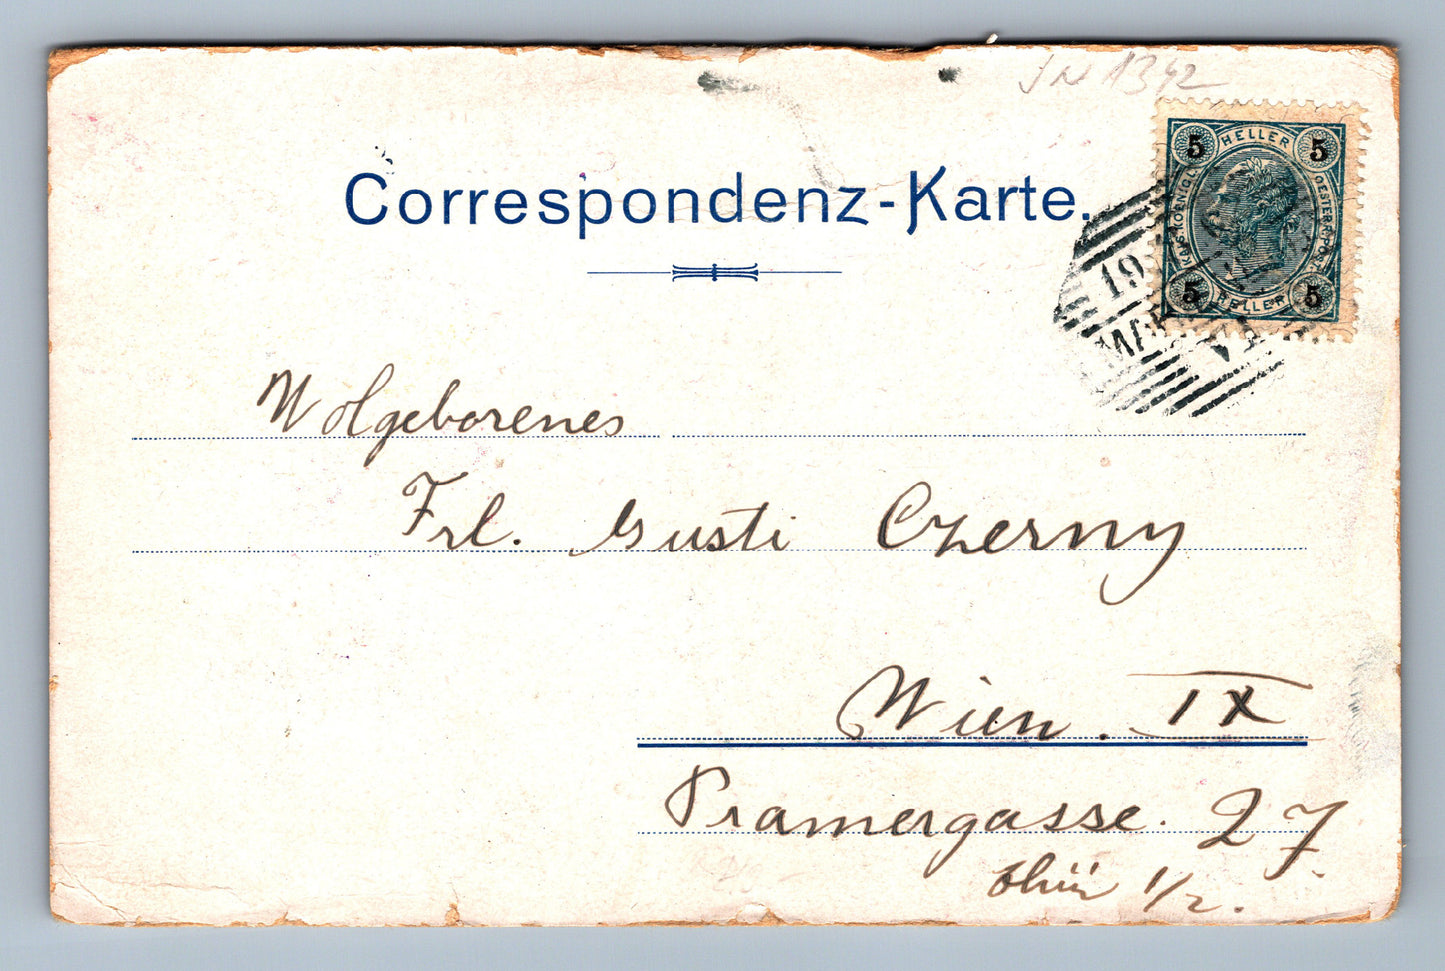 JN 1342
Correspondenz-Karte.
5 HELLER 5
KAIS. KOENIGL. OESTERR. POST
5 HELLER 5
19
Wolgeborenes
Frl. Gusti Czerny
Wien. IX
Pramergasse. 27.
Thür 1/2.